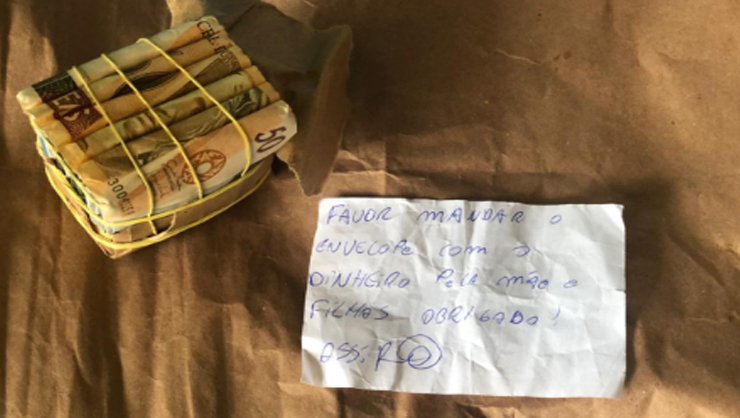 50
FAVOR MANDAR O
ENVELOPE COM O
DINHEIRO PELA MÃO E
FILHAS OBRIGADO!
ASS: R